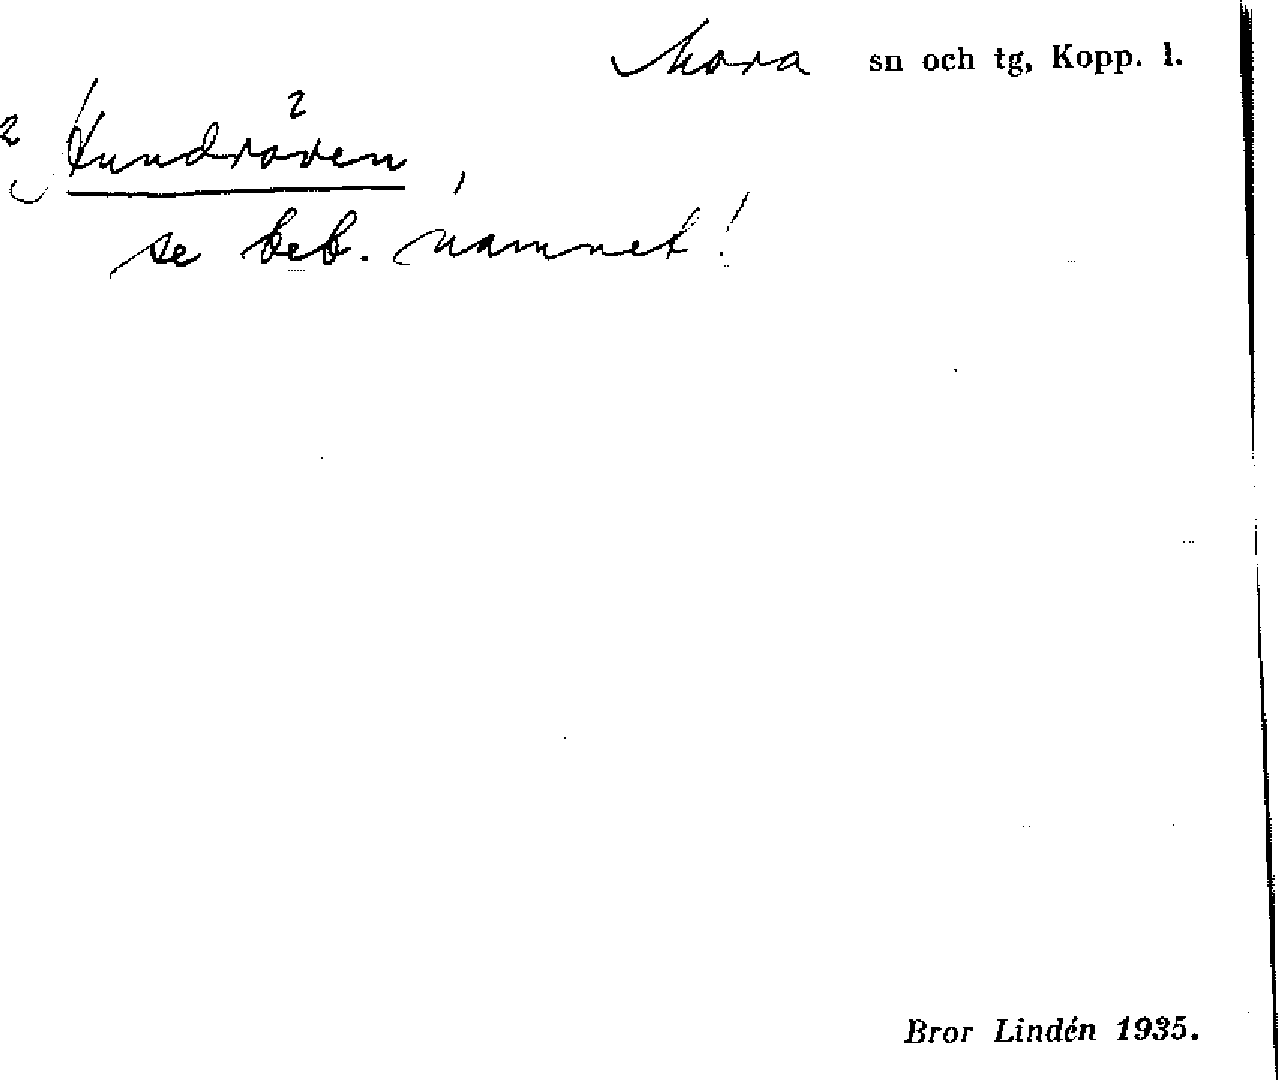 Mora sn och tg, Kopp. l.
2 2
Hundröven,
se beb. namnet!
Bror Lindén 1935.